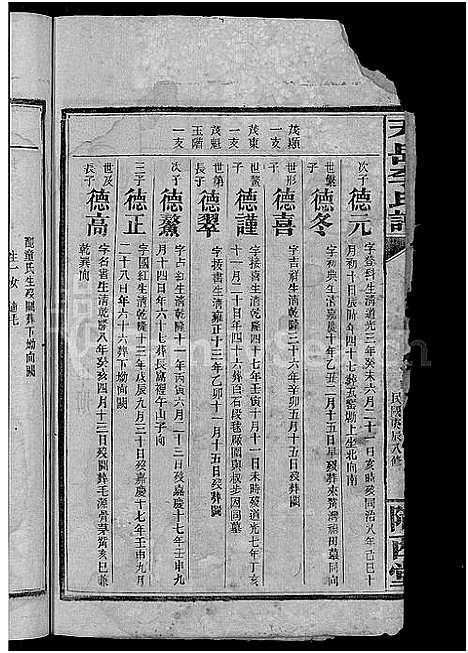 天岳李氏譜
民國庚辰八修
隴西堂
次子
德元
字登科生清道光三年癸未六月二十一亥時歿同治八年己巳十
月初十日辰時年四十七葬瓦窑塅上坐北向南
世繁
德冬
字初典生清嘉慶十年乙丑二月十五日歿葬來灣祖母墓同向
茂順
一支
世形
長子
德喜
字吉祥生清嘉慶
月十五日歿葬闕
茂東
一支
世鰲
次子
德謹
字接書生清乾隆四十七年壬寅十一月十一日未時歿道光七年丁亥
十二月二十日年四十六葬白石段毯廠園與叔步因同墓
茂魁
世第
長子
德翠
字接書生清雍正十三年乙卯十一月十五日歿葬闕
玉階
一支
次子
德鰲
字占魁生清乾隆十一年丙寅六月二十四日歿嘉慶十七年壬申九
月十四日年六十七葬長窩裡午山子向
三子
德正
字國紅生清乾隆十三年戊辰九月三十日歿嘉慶十七年壬申九月
二十八日年六十六葬下坳向闕
世及
長子
德高
字名書生清乾隆八年癸亥四月十三日歿闕葬毛源
乾巽向
配童氏生歿闕葬下坳向闕
生一女 適毛